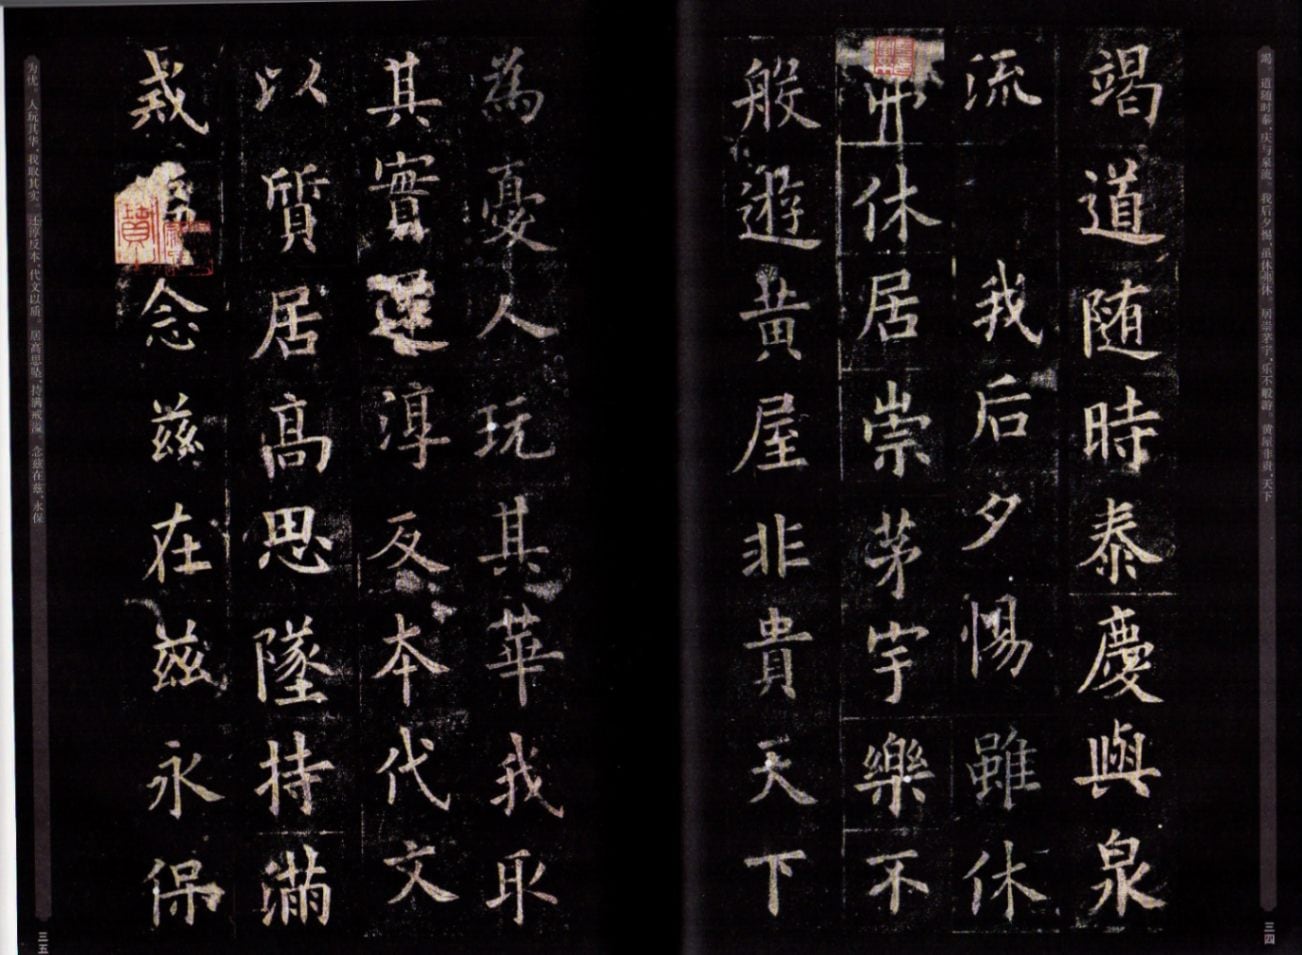 竭 道随时泰，庆与泉流。我后夕惕，虽休弗休。居崇茅宇，乐不般游。黄屋非贵，天下
三四
竭道随時泰慶與泉
流 我后夕惕雖休
弗休居崇茅宇樂不
般遊黄屋非貴天下
為憂人玩其華我取
其實還淳反本代文
以質居高思墜持滿
戒溢念兹在兹永保
为忧。人玩其华，我取其实。还淳反本，代文以质。居高思坠，持满戒溢。念兹在兹，永保
三五